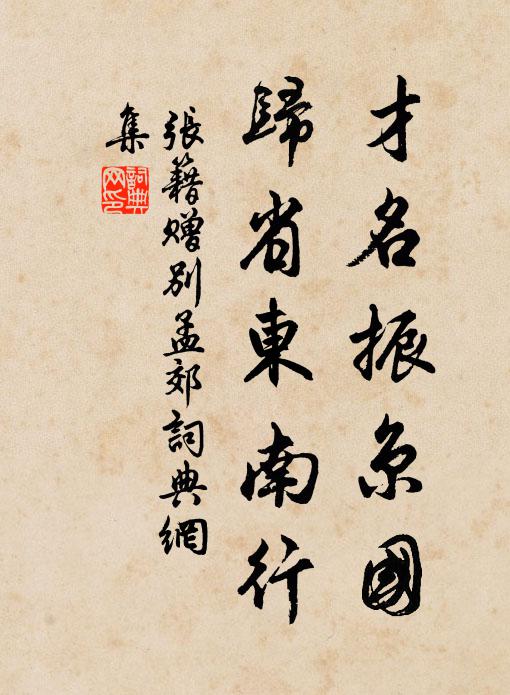 才名振京國
歸省東南行
張籍贈別孟郊詞典網
集
詞典
网印